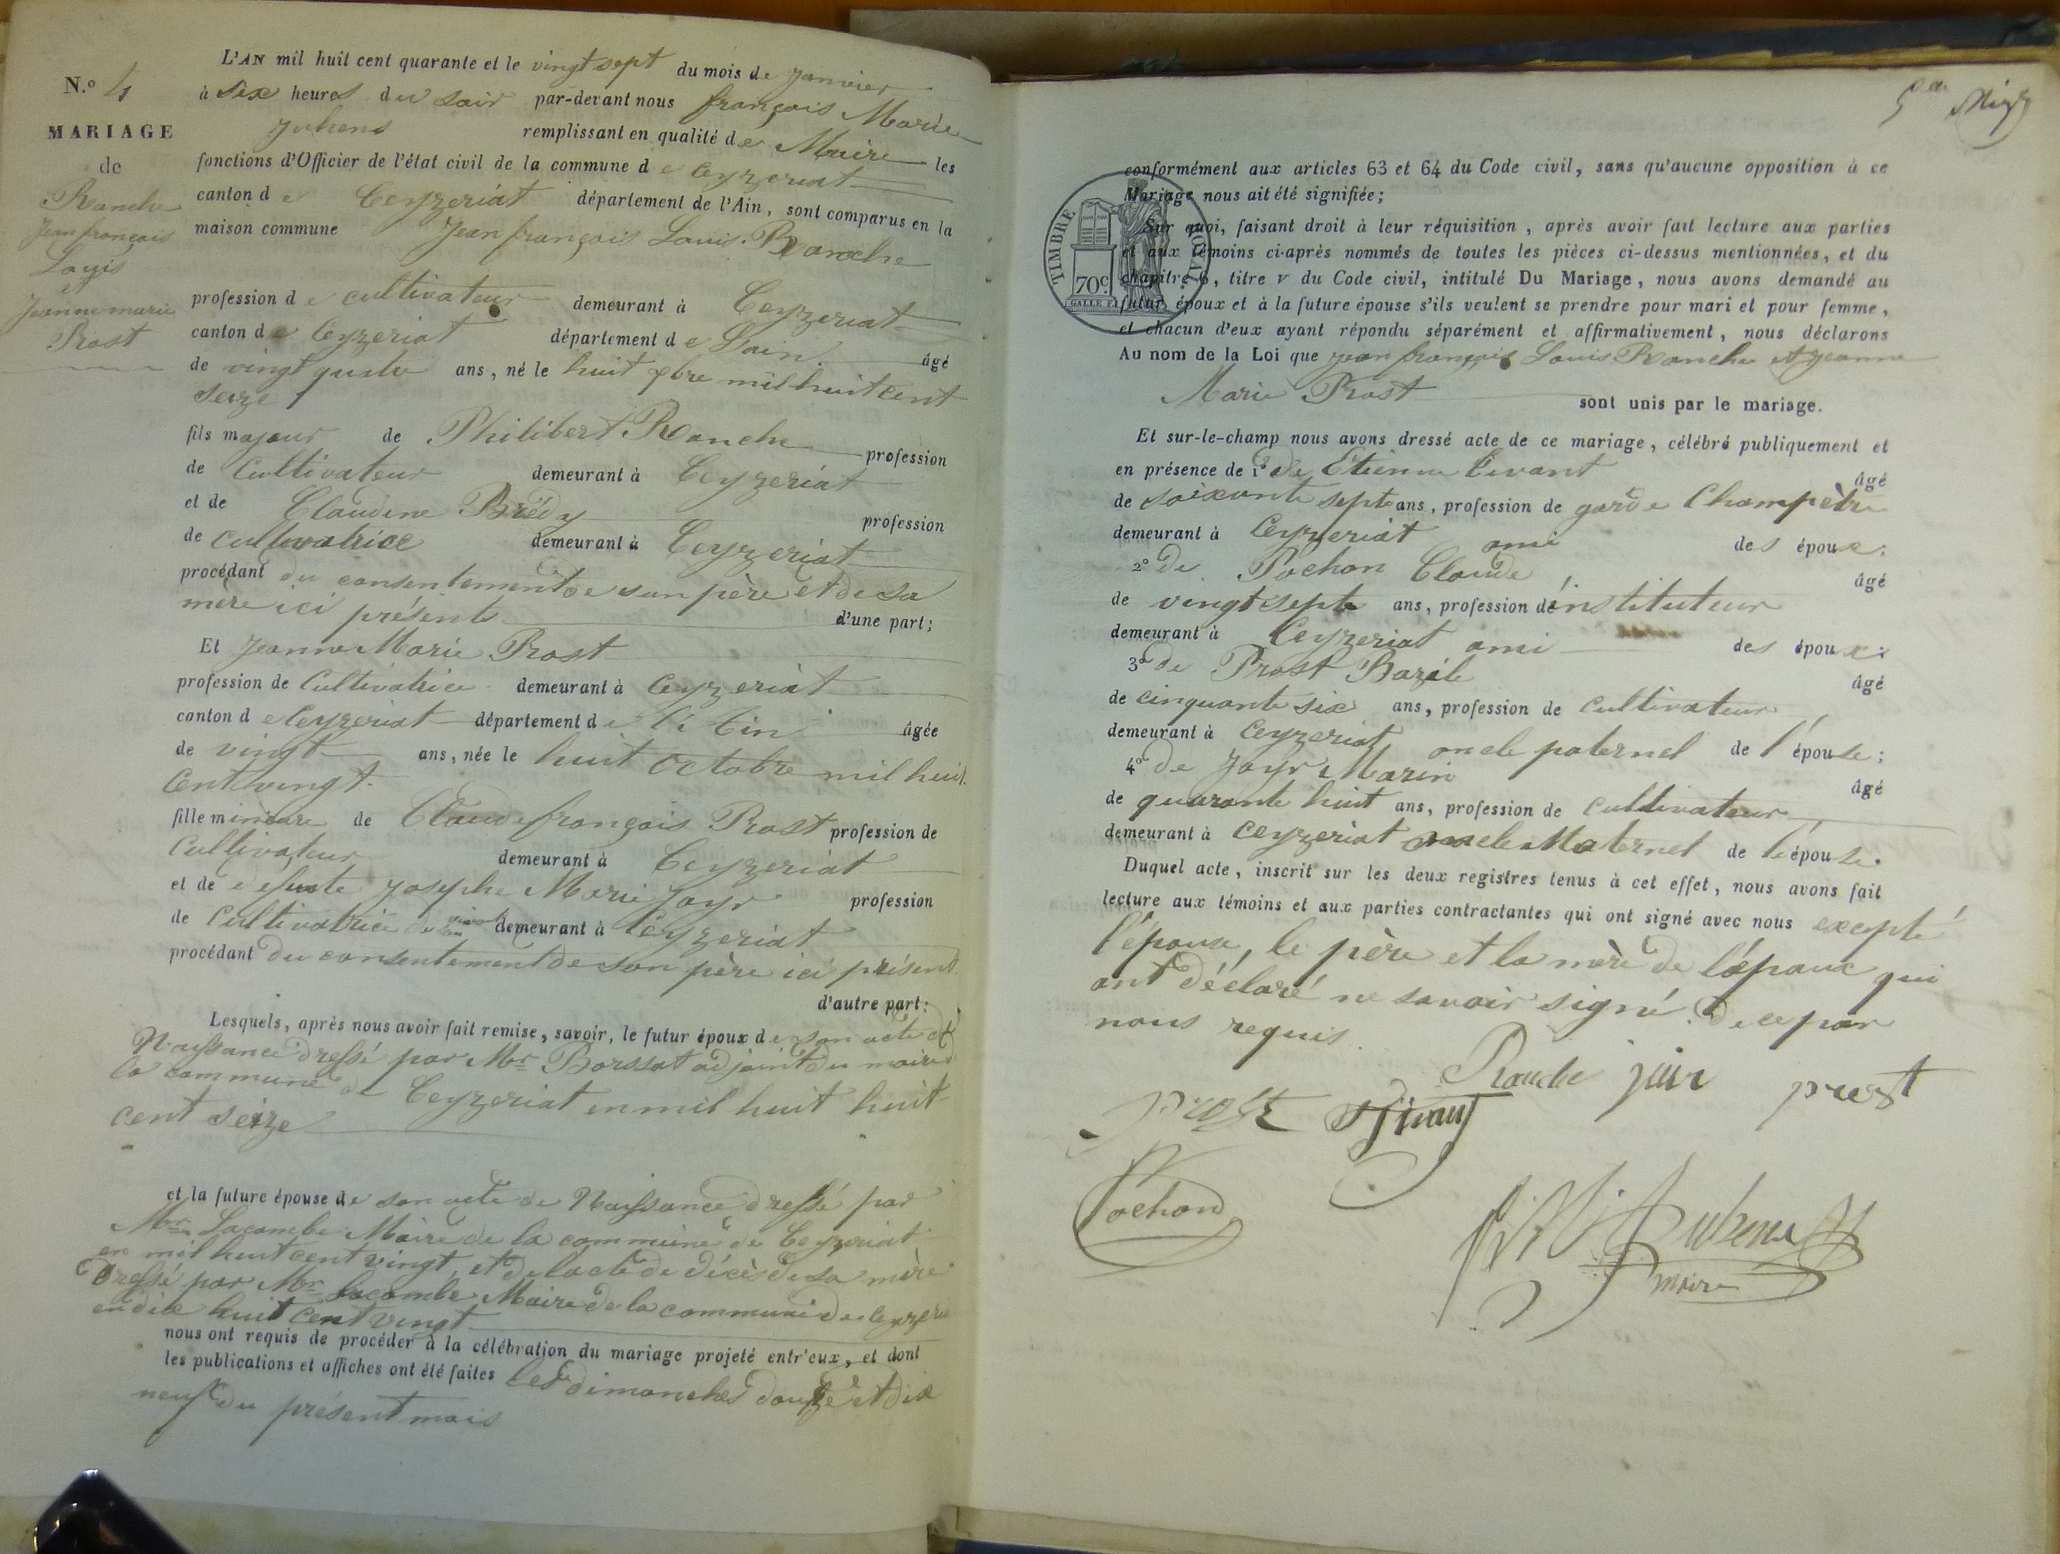 N.o 4
MARIAGE
de
Ranche
Jean françois
Louis
Jeanne marie
Prost
L'AN mil huit cent quarante et le vingt sept du mois de janvier
à six heures du soir par-devant nous françois Marie
remplissant en qualité de Maire les
fonctions d'Officier de l'état civil de la commune de Ceyzeriat
canton de Ceyzeriat département de l'Ain, sont comparus en la
maison commune Jean françois Louis Ranche
profession de cultivateur demeurant à Ceyzeriat
canton de Ceyzeriat département de L'ain âgé
de vingt quatre ans, né le huit xbre mil huit cent
seize
fils majeur de Philibert Ranche profession
de Cultivateur demeurant à Ceyzeriat
et de Claudine profession
de cultivatrice demeurant à Ceyzeriat
procédant du consentement de son père et de sa
mère ici présents d'une part;
Et Jeanne Marie Prost
profession de Cultivatrice demeurant à Ceyzeriat
canton de Ceyzeriat département de l'Ain âgée
de vingt ans, née le huit octobre mil huit
Cent vingt
fille mineure de Claude françois Prost profession de
Cultivateur demeurant à Ceyzeriat
et de defunte Josephe Marie Joyr profession
de Cultivatrice de son vivant demeurant à Ceyzeriat
procédant du consentement de son père ici présent
d'autre part:
Lesquels, après nous avoir fait remise, savoir, le futur époux de son acte de
Naissance dressé par Mr Borssat adjoint du maire d
la commune de Ceyzeriat en mil huit huit
cent seize
et la future épouse de son acte de Naissance dressé par
Mr Lacombe Maire de la commune de Ceyzeriat
en mil huit cent vingt, et de l'acte de décès de sa mère
Dressé par Mr Lacombe Maire de la commune de Ceyzeriat
en dix huit cent vingt
nous ont requis de procéder à la célébration du mariage projeté entr'eux, et dont
les publications et affiches ont été faites les dimanches douze et dix
neuf du présent mois
conformément aux articles 63 et 64 du Code civil, sans qu'aucune opposition à ce
Mariage nous ait été signifiée;
TIMBRE ROYAL
70c
Sur quoi, faisant droit à leur réquisition, après avoir fait lecture aux parties
et aux témoins ci-après nommés de toutes les pièces ci-dessus mentionnées, et du
chapitre 6, titre v du Code civil, intitulé Du Mariage, nous avons demandé au
futur époux et à la future épouse s'ils veulent se prendre pour mari et pour femme,
et chacun d'eux ayant répondu séparément et affirmativement, nous déclarons
Au nom de la Loi que jean françois Louis Ranche et jeanne
Marie Prost sont unis par le mariage.
Et sur-le-champ nous avons dressé acte de ce mariage, célébré publiquement et
en présence de 1o de Etienne âgé
de soixante sept ans, profession de garde Champètre
demeurant à Ceyzeriat ami des époux;
2o de Pochon Claude âgé
de vingt sept ans, profession d'instituteur
demeurant à Ceyzeriat ami des époux;
3o de Prost Bazile âgé
de cinquante six ans, profession de cultivateur
demeurant à Ceyzeriat oncle paternel de l'épouse;
4o de Joyr Marin âgé
de quarante huit ans, profession de Cultivateur
demeurant à Ceyzeriat oncle Maternel de l'épouse.
Duquel acte, inscrit sur les deux registres tenus à cet effet, nous avons fait
lecture aux témoins et aux parties contractantes qui ont signé avec nous excepté
l'époux, le père et la mère de l'époux qui
ont déclaré ne savoir signé de ce par
nous requis.
Ranche join prost
prost
Pochon
maire